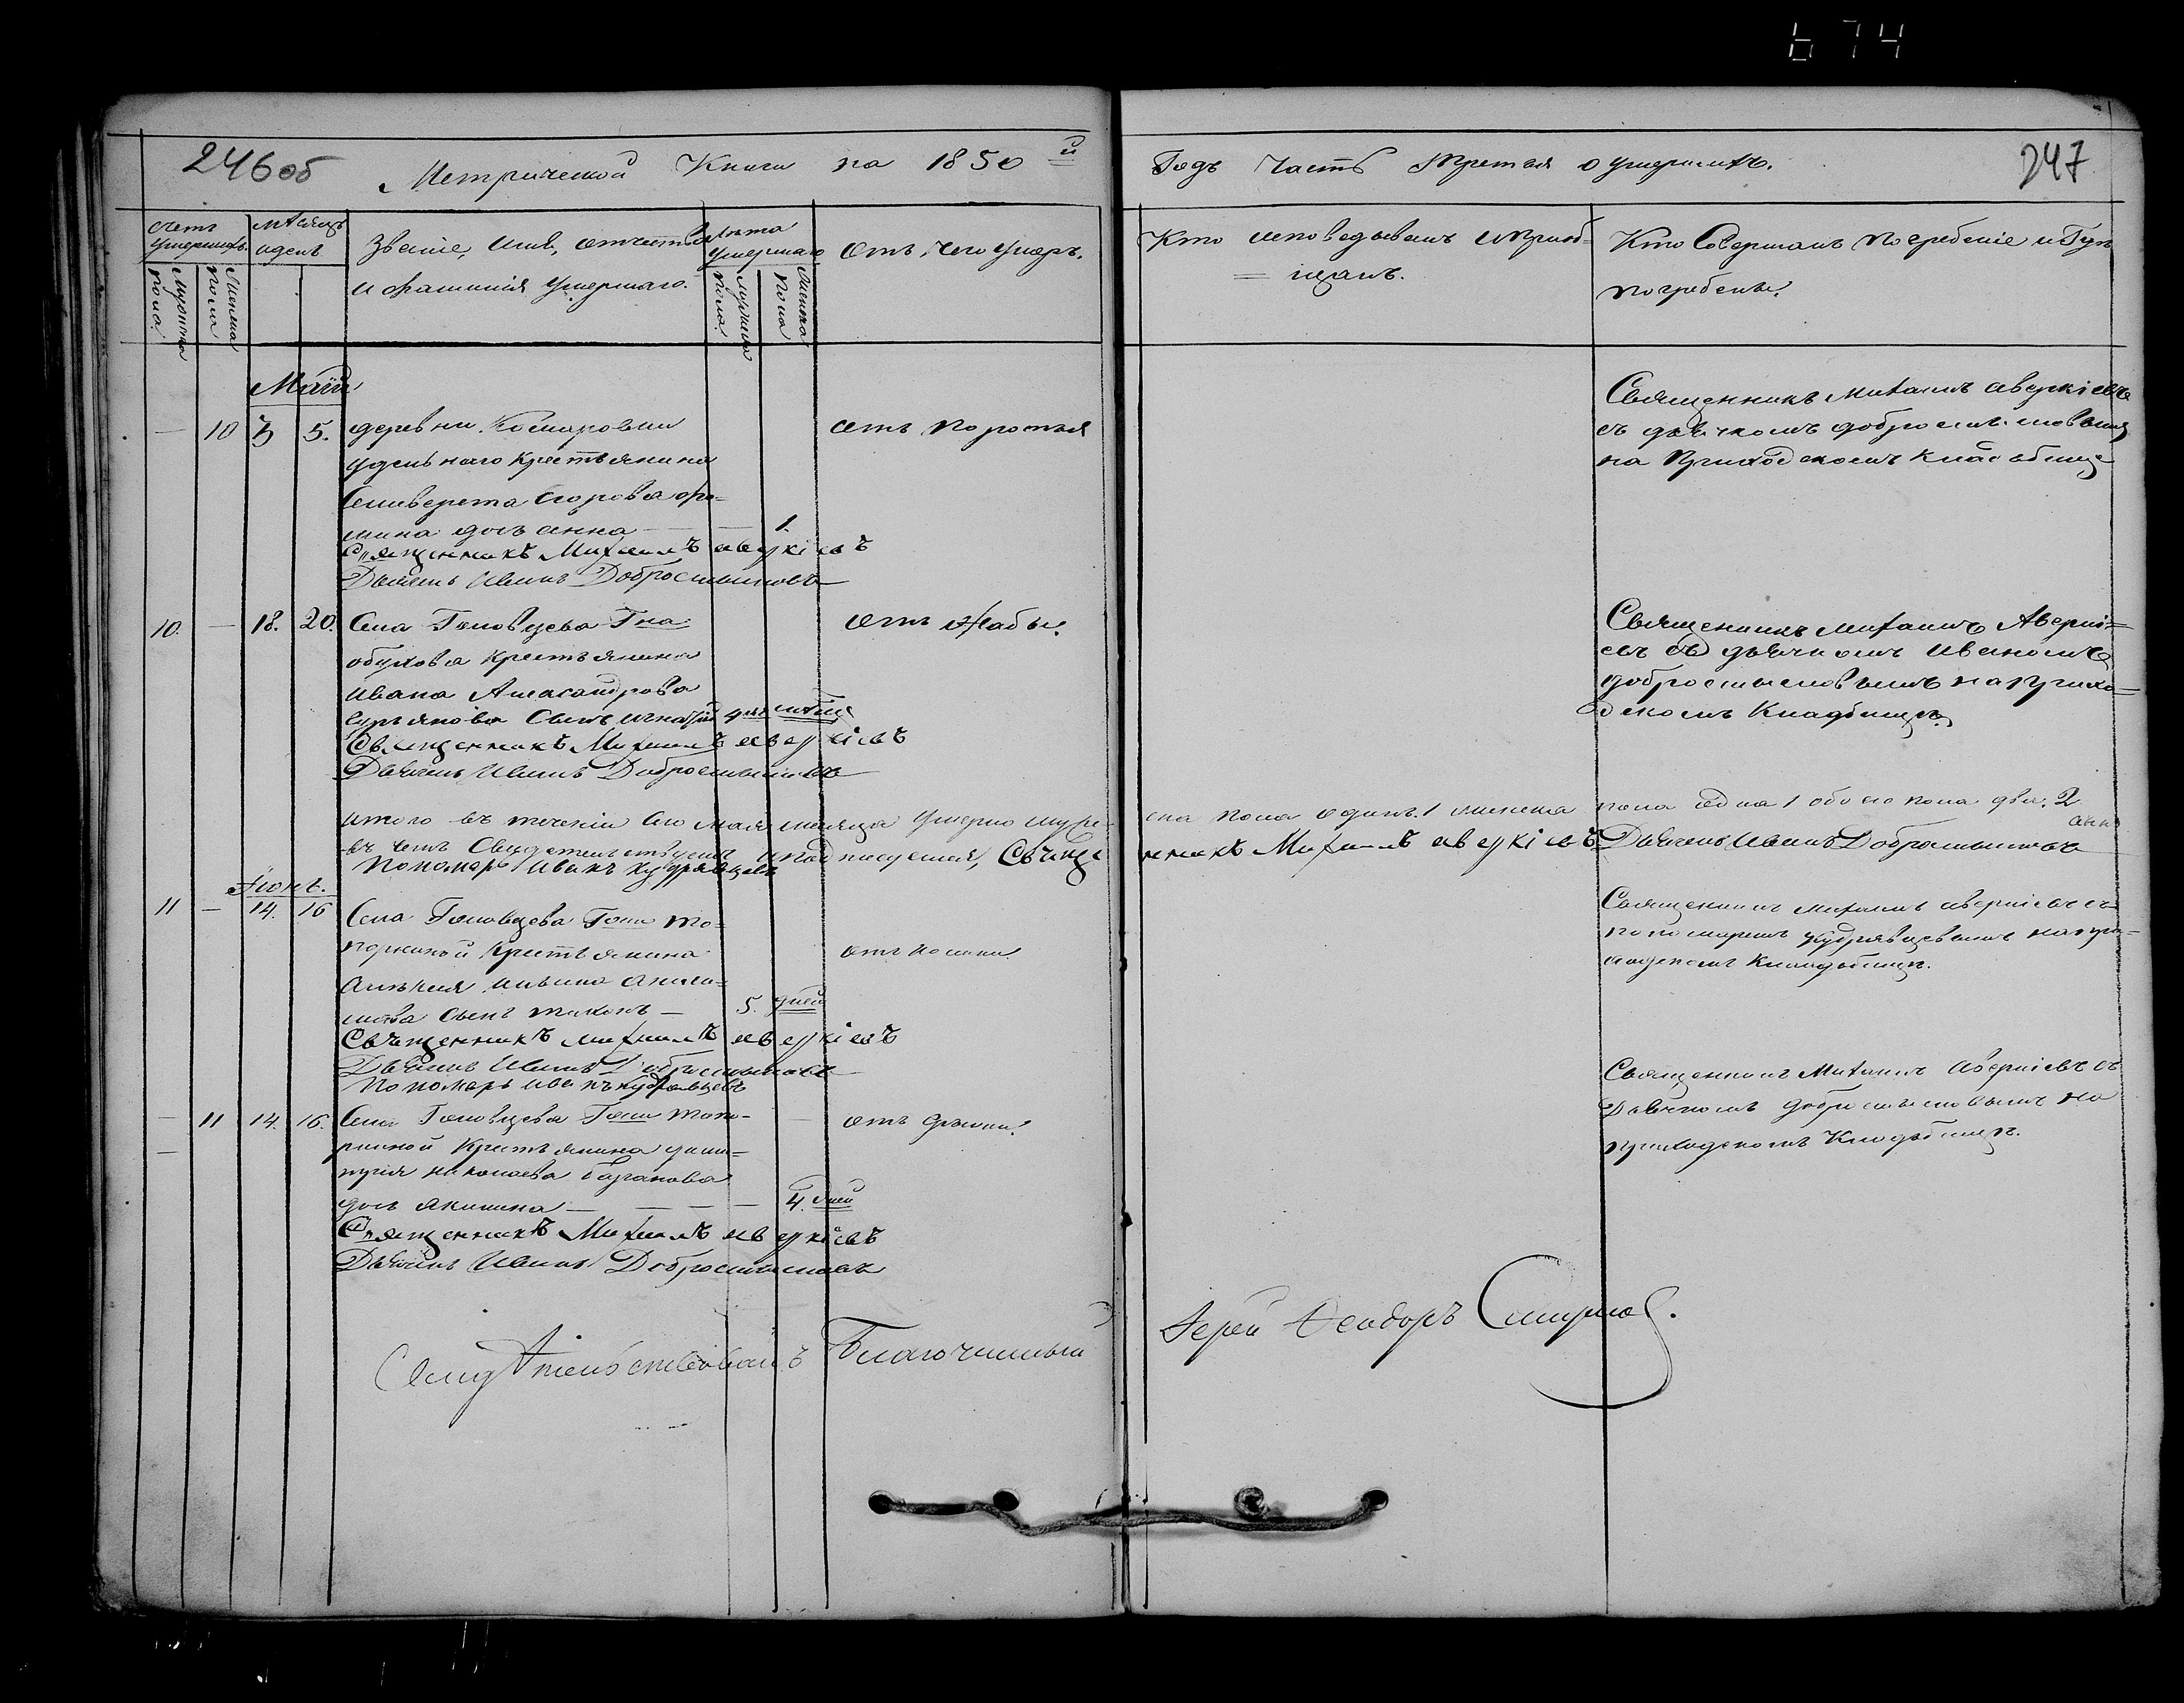 674
246об
Метрической Книги на 1850 й
Годъ Часть третья о умершихъ.
247
счетъ умершихъ.
мужеска пола.
женска пола
мѣсяцъ и день
Званіе, имя, отчество
и фамилія умершаго.
лѣта умершаго
мужеска пола.
женска пола
Отъ чего умеръ.
Кто исповѣдывалъ и пріоб=
=щалъ.
Кто Совершалъ погребеніе и Гдѣ
погребены.
Маій
— 10 3 5.
деревни Комаровки
удѣльнаго крестьянина
Селиверста Егорова
дочь анна — — 1.
Священникъ Михаилъ аверкіевъ
Дьячекъ Иванъ Добросмысловъ
Священникъ Михаилъ аверкіевъ
съ дьячкомъ добросмысловымъ
на Приходскомъ кладбище
10. — 18. 20.
Села Головцева Гна
обухова крестьянина
Ивана Александрова
Сынъ игнатій 4 мѣсяц
Священникъ Михаилъ аверкіевъ
Дьячекъ Иванъ Добросмысловъ
отъ Жабы.
Священникъ михаилъ Аверкі=
евъ съ дьячкомъ Иваномъ
добросмысловымъ на прихо=
дскомъ Кладбищѣ.
итого въ теченіи Сего мая месяца Умерло муже
ска пола одинъ 1 женска пола одна 1 обоего пола два. 2
въ чемъ Свидетельствуемъ и подписуемся, Священникъ Михаилъ аверкіевъ Дьячекъ Иванъ Добросмысловъ
Пономарь Иванъ кудрявцевъ
Іюнь.
11 — 14. 16
Села Головцева Гжи то=
поркиной Крестьянина
Алексея
сынъ тихонъ — 5. дней
Священникъ михаилъ аверкіевъ
Дьячекъ Иванъ Добросмысловъ
Пономарь иванъ кудрявцевъ
Священникъ михаилъ аверкіевъ съ
пономаремъ кудрявцевымъ на при=
ходскомъ Кладбищѣ.
— 11 14. 16.
Села Головцева Гжи топо=
ркиной Крестьянина дими=
трія николаева баранова
дочь акилина — — — — 4. дней
Священникъ Михаилъ аверкіевъ
Дьячекъ Иванъ Добросмысловъ
Священникъ Михаилъ Аверкіевъ съ
Дьячкомъ Добросмысловымъ на
приходскомъ Кладбищѣ.
Свидѣтельствовалъ Благочинный
Іерей Ѳеодоръ Смирнов.